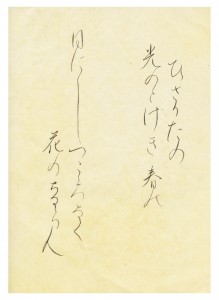 ひさかたの
光のとけき春の
日にしつこゝろなく
花のちるらん